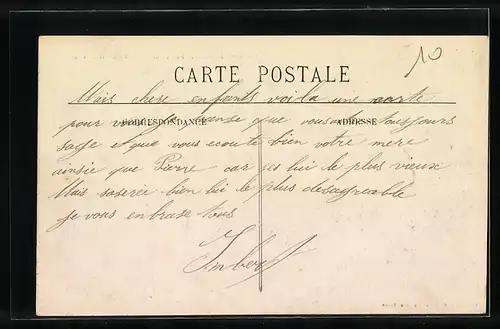 10
CARTE POSTALE
Mais chere enfants voila une carte
CORRESPONDANCE
ADRESSE
pour vous pense que vous toujours
sage et que vous ecoute bien votre mere
ainsie que Pierre car ses lui le plus vieux
Mais bien lui le plus desagreable
je vous enbrase tous
Imbert